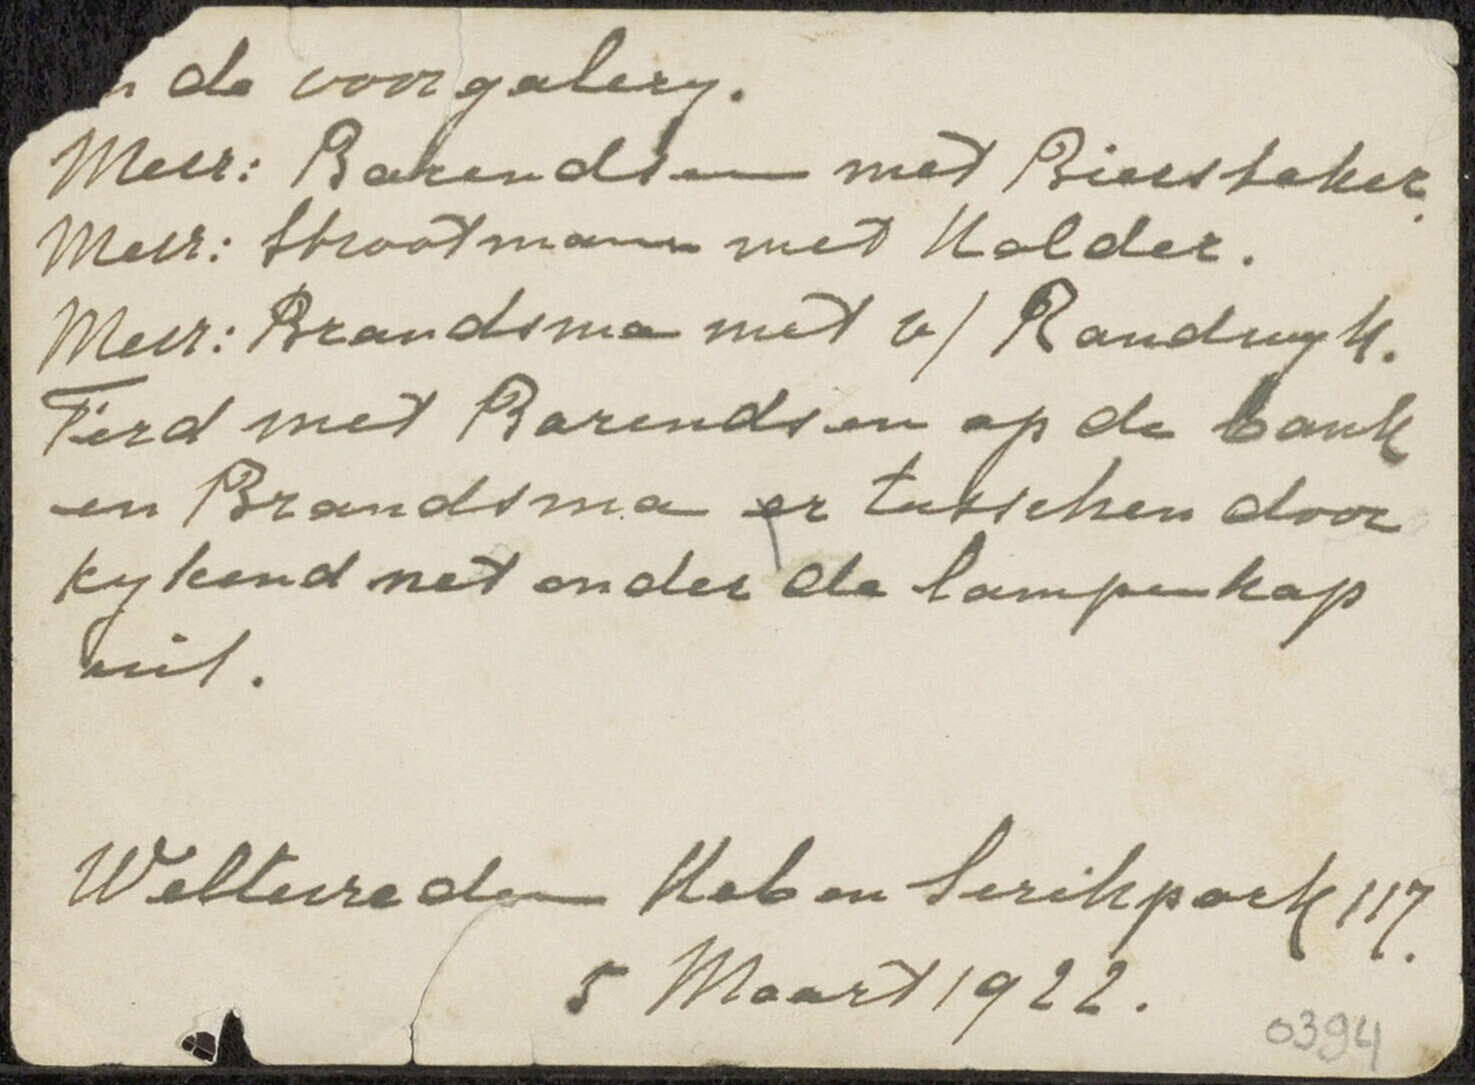 n de voorgalery.
Mevr: Barendsen met Biersteker.
Mevr: Strootmann met Kolder.
Mevr: Brandsma met v/ Randwyk.
Ferd met Barendsen op de bank
en Brandsma er tusschen door
kykend net onder de lampenkap
uit.
Weltevreden Kebon Serikpark 117.
5 Maart 1922.
0394